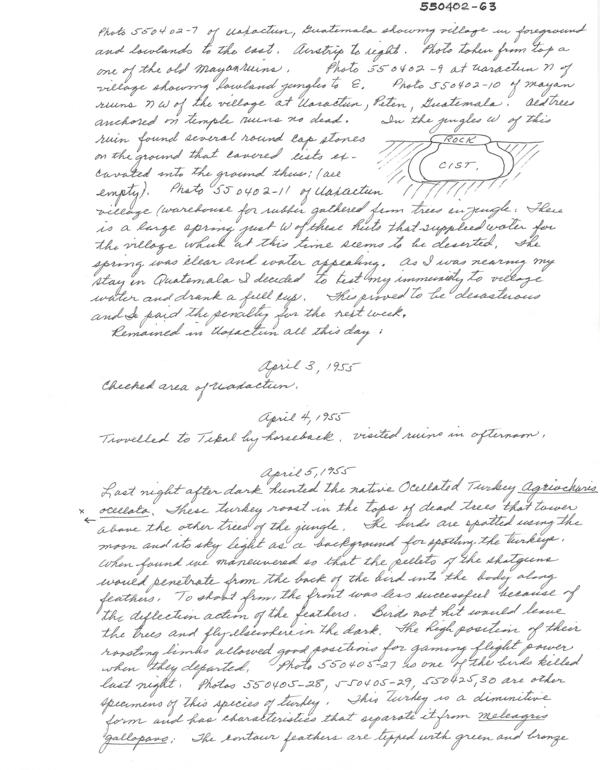 550402-63
Photo 550402-7 of Uaxactun, Guatemala showing village in foreground
and lowlands to the east. Airstrip to right. Photo taken from top a
one of the old Mayan ruins. Photo 550402-9 at Uaxactun N of
village showing lowland jungles to E. Photo 550402-10 of Mayan
ruins NW of the village at Uaxactun, Peten, Guatemala. Old trees
anchored on temple ruins no dead. In the jungles W of this
ruin found several round cap stones
on the ground that covered cists ex-
cavated into the ground thus: (all
empty). Photo 550402-11 of Uaxactun
ROCK
CIST.
village (warehouse for rubber gathered from trees in jungle. There
is a large spring just W of these huts that supplied water for
the village which at this time seems to be deserted. The
spring was clear and water appealing. As I was nearing my
stay in Guatemala I decided to test my immunity to village
water and drank a full cup. This proved to be desasterous
and I paid the penalty for the next week.
Remained in Uaxactun all this day.
April 3, 1955
Checked area of Uaxactun.
April 4, 1955
Travelled to Tikal by horseback. visited ruins in afternoon.
April 5, 1955
Last night after dark hunted the native Ocellated Turkey Agriocharis
x ocellata. These turkey roost in the tops of dead trees that tower
← above the other trees of the jungle. The birds are spotted using the
moon and its sky light as a background for spotting the turkeys.
When found we maneuvered so that the pellets of the shotguns
would penetrate from the back of the bird into the body along
feathers. To shoot from the front was less successful because of
the deflection action of the feathers. Birds not hit would leave
the trees and fly elsewhere in the dark. The high position of their
roosting limbs allowed good positions for gaining flight power
when they departed. Photo 550405-27 is one of the birds killed
last night. Photos 550405-28, 550405-29, 550425,30 are other
specimens of this species of turkey. This Turkey is a diminitive
form and has characteristics that separate it from Meleagris
gallopavo: The contour feathers are tipped with green and bronze